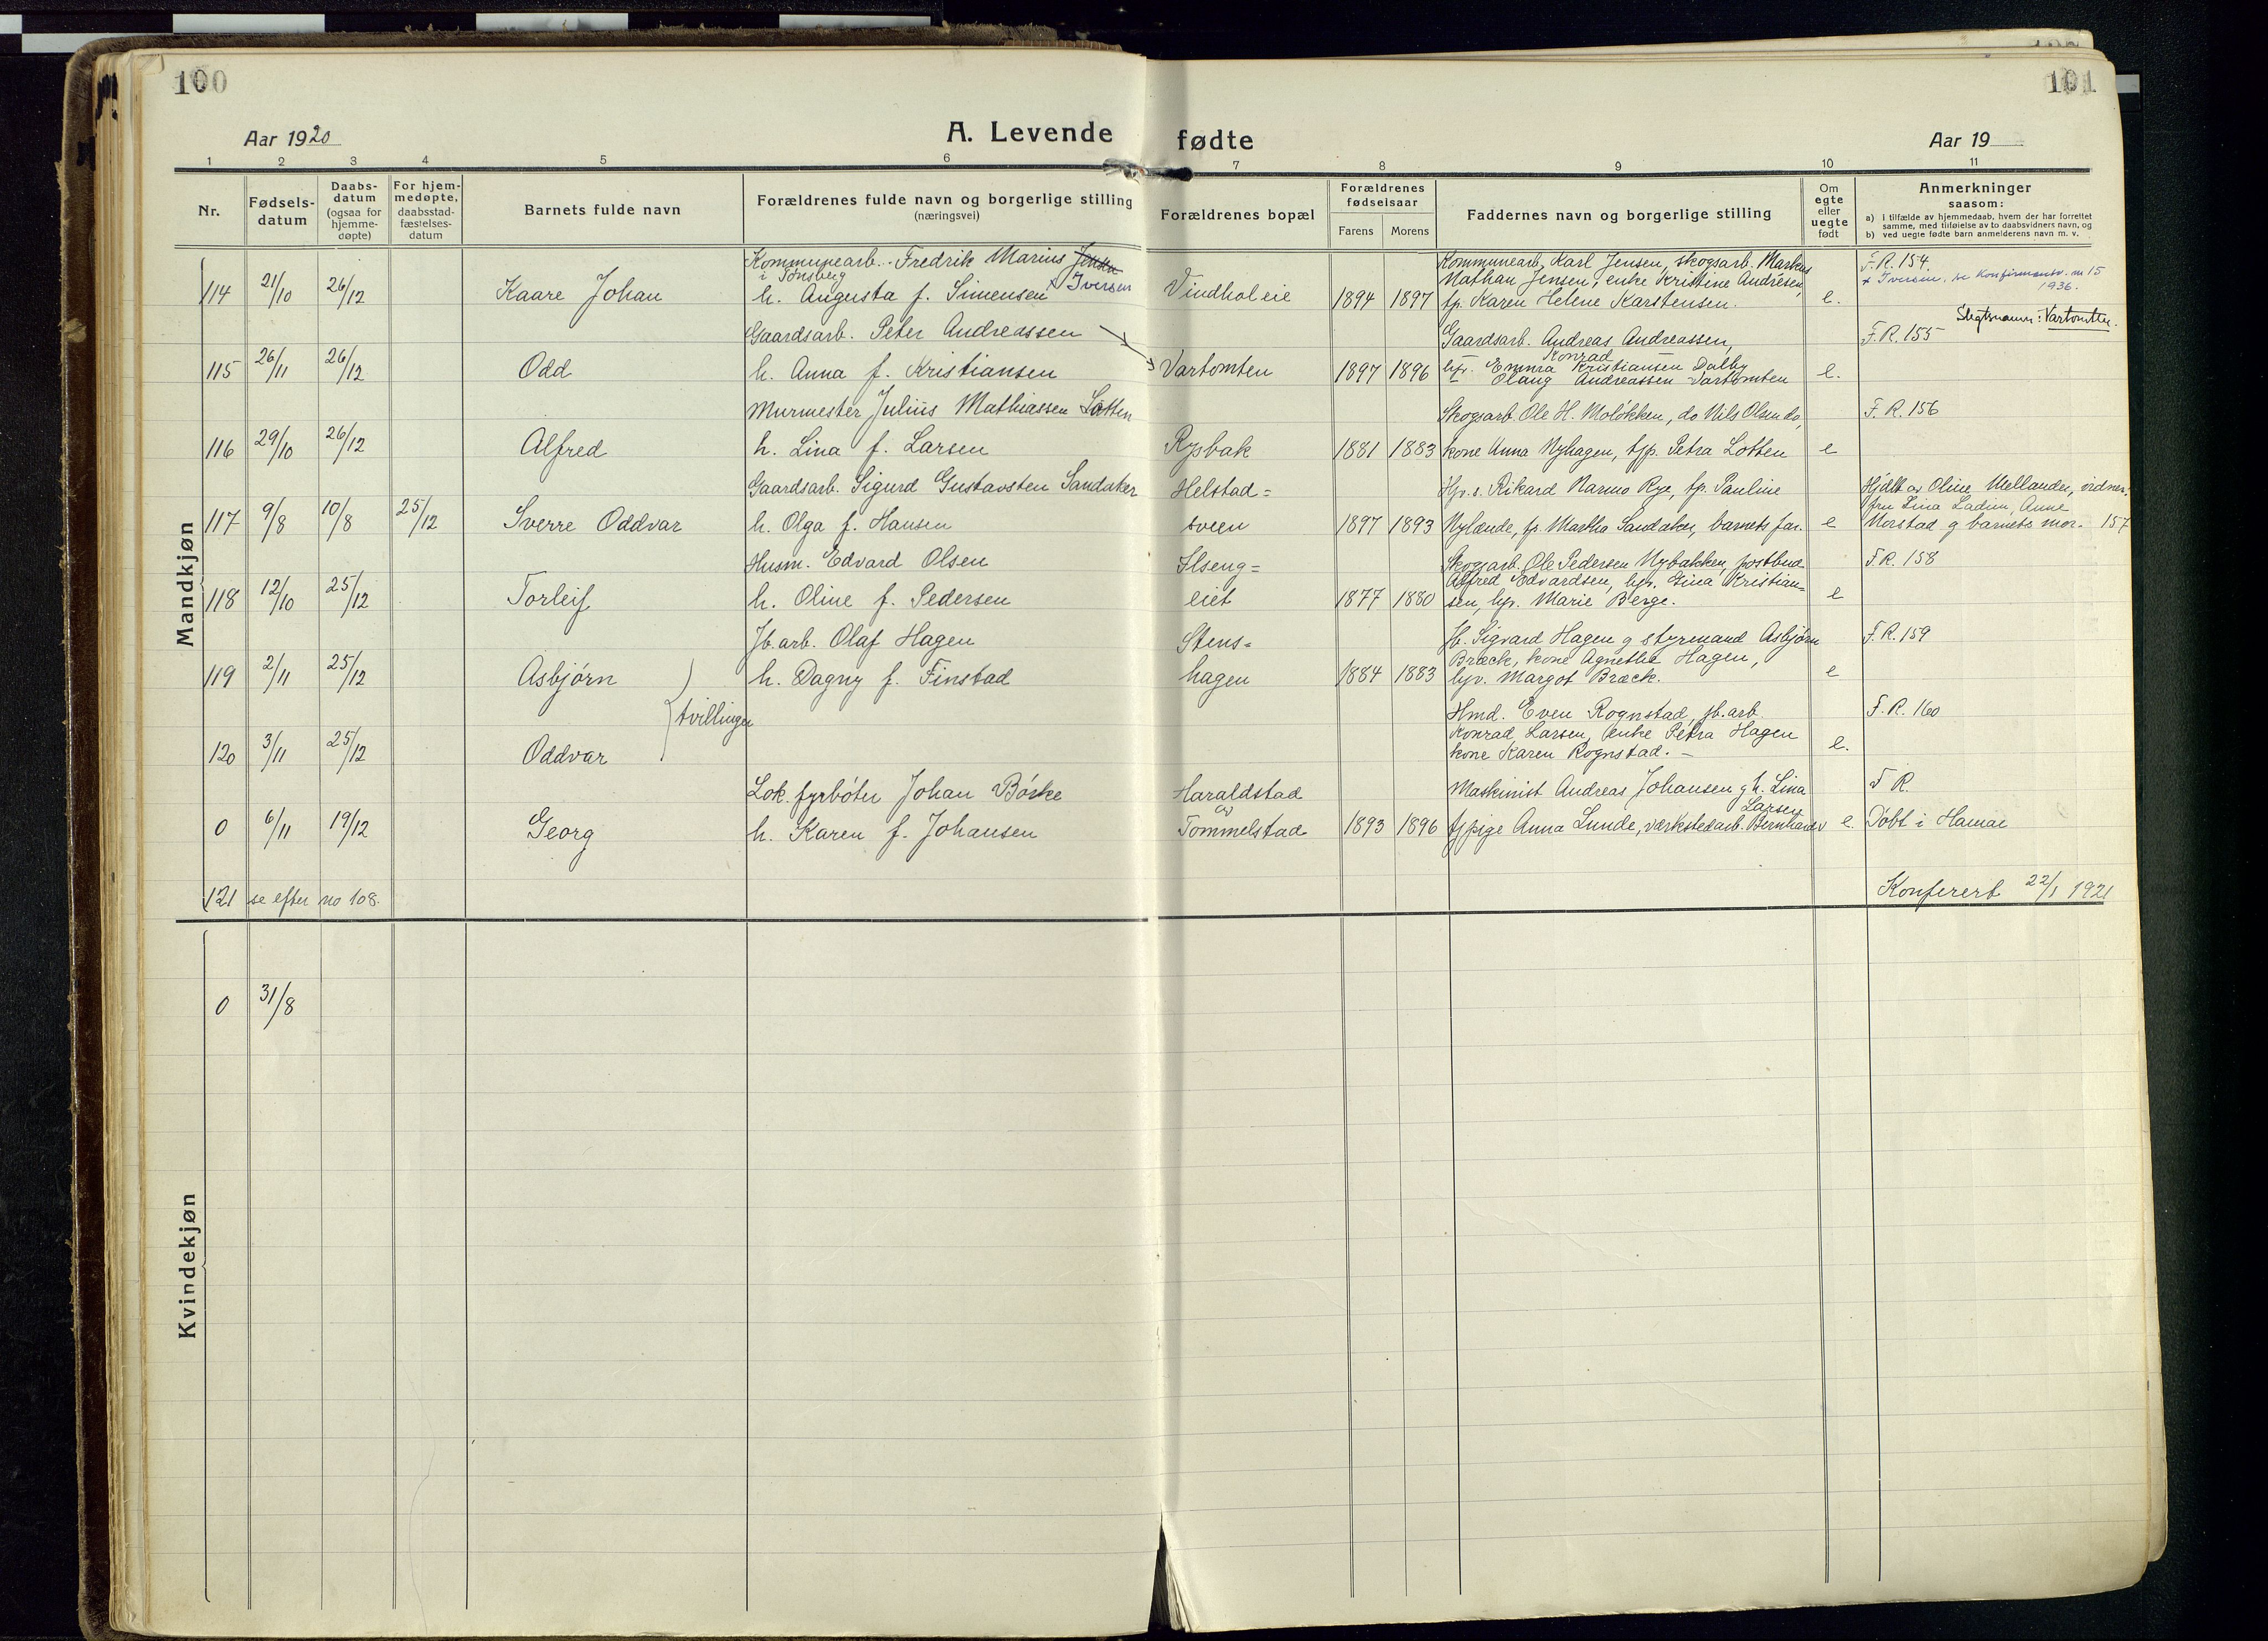 100
101
Aar 1920
A. Levende fødte
Aar 19
1 2 3 4 5 6 7 8 9 10 11
Nr.
Fødsels-
datum
Daabs-
datum
(ogsaa for
hjemme-
døpte)
For hjem-
medøpte,
daabsstad-
fæstelses-
datum
Barnets fulde navn
Forældrenes fulde navn og borgerlige stilling
(næringsvei)
Forældrenes bopæl
Forældrenes
fødselsaar
Farens Morens
Faddernes navn og borgerlige stilling
Om
egte
eller
uegte
født
Anmerkninger
saasom:
a) i tilfælde av hjemmedaab, hvem der har forrettet
samme, med tilføielse av to daabsvidners navn, og
b) ved uegte fødte barn anmelderens navn m. v.
Mandkjøn
Kommunearb. Fredrik Marius Jensen
i Tønsberg x Iversen
114 21/10 26/12 Kaare Johan h. Augusta f. Simensen Vindhol eie 1894 1897
Kommunearb. Karl Jensen, skogsarb. Markus
Nathan Jensen, enke Kristine Andresen,
fp. Karen Helene Karstensen. e.
F.R. 154.
x Iversen, se Konfirmantr. nr 15
1936.
Slegtsnavn: Vartomten.
Gaardsarb. Peter Andreassen
115 26/11 26/12 Odd h. Anna f. Kristiansen Vartomten 1897 1896
Gaardsarb. Andreas Andreassen,
Konrad
Emma Kristiansen Dalby
Olaug Andreassen Vartomten e.
F.R. 155
Murmester Julius Mathiassen Lotten
116 29/10 26/12 Alfred h. Lina f. Larsen Rysbak 1881 1883
Skogsarb. Ole H. Moløkken, do Nils Olsen do,
kone Anna Nyhagen, tjp. Petra Lotten e
F. R. 156
Gaardsarb. Sigurd Gustavsten Sandaker Helstad=
117 9/8 10/8 25/12 Sverre Oddvar h. Olga f. Hansen sveen 1897 1893
Rikard Narmo Rye, fp. Pauline
Nylænde, fp. Martha Sandaker, barnets far. e
Hjdbt av Oline Mellander, vidner:
fru Lina Ladim, Anne
Morstad og barnets mor. 157
Husm. Edvard Olsen Ilseng=
118 12/10 25/12 Torleif h. Oline f. Pedersen eiet 1877 1880
Skogsarb. Ole Pedersen Nybakken, postbud
Alfred Edvardsen, hjv. Gina Kristian=
sen, hjv. Marie Berge. e
F.R. 158
Jb. arb. Olaf Hagen Stens=
119 2/11 25/12 Asbjørn h. Dagny f. Finstad hagen 1884 1883
Sigvard Hagen og styrmand Asbjørn
Bræck, kone Agnethe Hagen,
hjv. Margot Bræck. e
F.R. 159
tvillinger
120 3/11 25/12 Oddvar
Hmd. Even Rognstad, jb. arb.
Konrad Larsen, enke Petra Hagen
kone Karen Rognstad. — e.
F. R. 160
Lok. fyrbøter Johan Børke Haraldstad
av
0 6/11 19/12 Georg h. Karen f. Johansen Tommelstad 1893 1896
Maskinist Andreas Johansen g h. Lina
Larsen
tjpige Anna Lunde, værkstedarb. Bernhard e.
F R.
Døbt i Hamar
121 se efter no 108.
Konferert 22/1 1921
Kvindekjøn
0 31/8